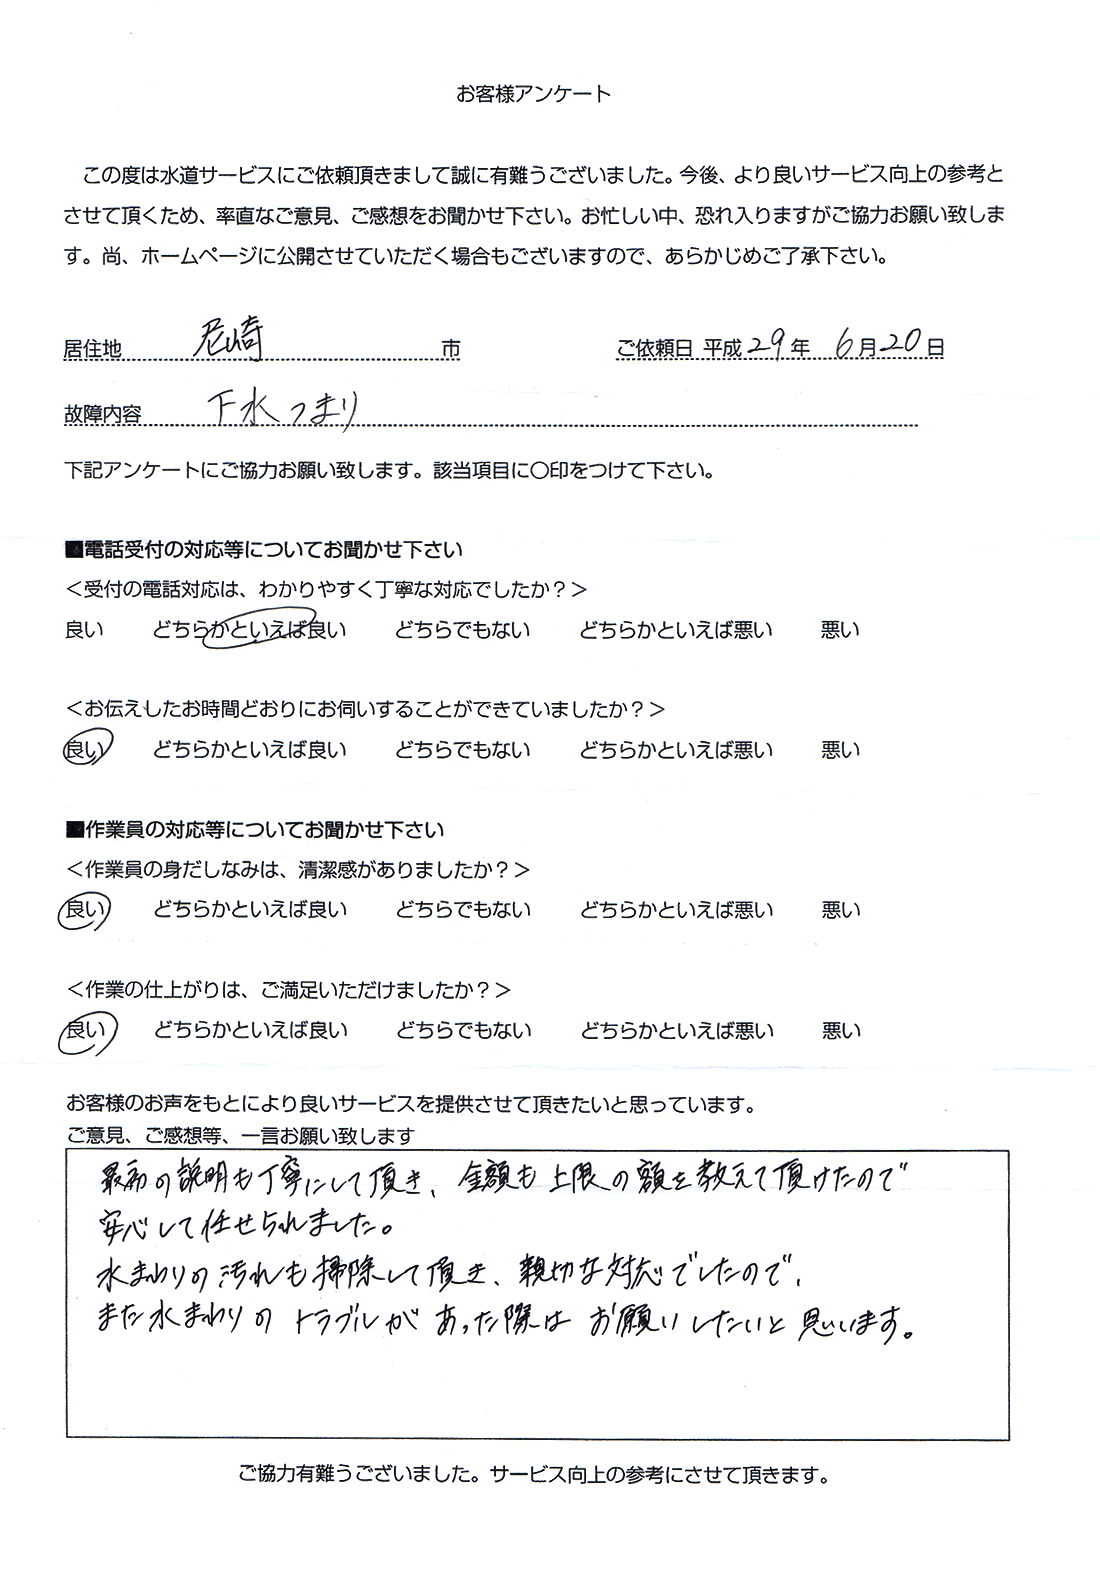 お客様アンケート
この度は水道サービスにご依頼頂きまして誠に有難うございました。今後、より良いサービス向上の参考と
させて頂くため、率直なご意見、ご感想をお聞かせ下さい。お忙しい中、恐れ入りますがご協力お願い致しま
す。尚、ホームページに公開させていただく場合もございますので、あらかじめご了承下さい。
居住地 尼崎 市 ご依頼日 平成29年 6月20日
故障内容 下水つまり
下記アンケートにご協力お願い致します。該当項目に〇印をつけて下さい。
■電話受付の対応等についてお聞かせ下さい
＜受付の電話対応は、わかりやすく丁寧な対応でしたか？＞
良い どちらかといえば良い どちらでもない どちらかといえば悪い 悪い
＜お伝えしたお時間どおりにお伺いすることができていましたか？＞
良い どちらかといえば良い どちらでもない どちらかといえば悪い 悪い
■作業員の対応等についてお聞かせ下さい
＜作業員の身だしなみは、清潔感がありましたか？＞
良い どちらかといえば良い どちらでもない どちらかといえば悪い 悪い
＜作業の仕上がりは、ご満足いただけましたか？＞
良い どちらかといえば良い どちらでもない どちらかといえば悪い 悪い
お客様のお声をもとにより良いサービスを提供させて頂きたいと思っています。
ご意見、ご感想等、一言お願い致します
最初の説明も丁寧にして頂き、金額も上限の額を教えて頂けたので
安心して任せられました。
水まわりの汚れも掃除して頂き、親切な対応でしたので、
また水まわりのトラブルがあった際はお願いしたいと思いいます。
ご協力有難うございました。サービス向上の参考にさせて頂きます。